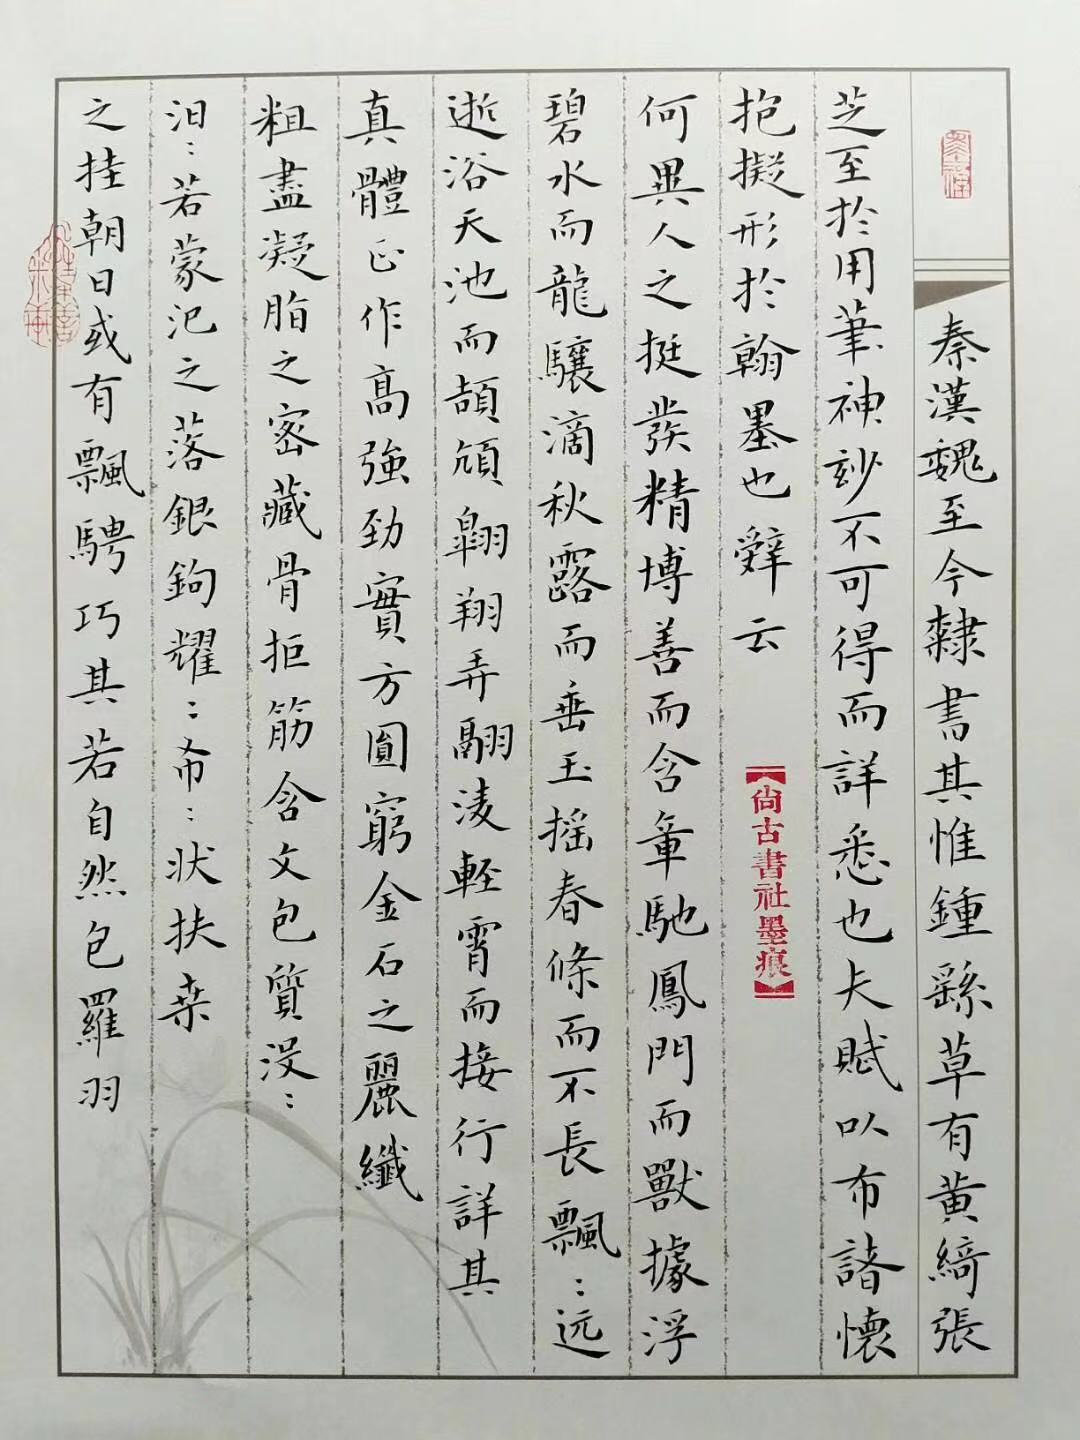 秦漢魏至今隸書其惟鍾繇草有黄綺張
芝至於用筆神妙不可得而詳悉也夫賦以布諸懷
抱擬形於翰墨也辭云
【尚古書社墨痕】
何異人之挺發精博善而含章馳鳳門而獸據浮
碧水而龍驤滴秋露而垂玉摇春條而不長飄〻远
逝浴天池而頡頏翱翔弄翮淩輕霄而接行詳其
真體正作高強勁實方圓窮金石之麗纖
粗盡凝脂之密藏骨拒筋含文包質没〻
汨〻若蒙汜之落銀鉤耀〻希〻状扶桒
之挂朝日或有飄騁巧其若自然包羅羽